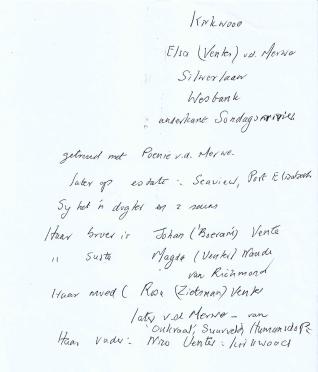 Kirkwood
Elsa (Venter) v.d. Merwe
Silwerlaan
Wesbank
anderkant Sondagsrivier
getroud met Poenie v.d. Merwe.
later op estate :- Seaview, Port Elizabeth
Sy het 'n dogter en 2 seuns
Haar broer is Johan ('Boeram') Vente
" Suste Magda (Venter) Naude
van Richmond
Haar moed ( Rosa (Zietsman) Venter
later v.d. Merwe - van
'Oukraal', Suurveld, Humansdorp
Haar vader: Niro Venter :- Kirkwood